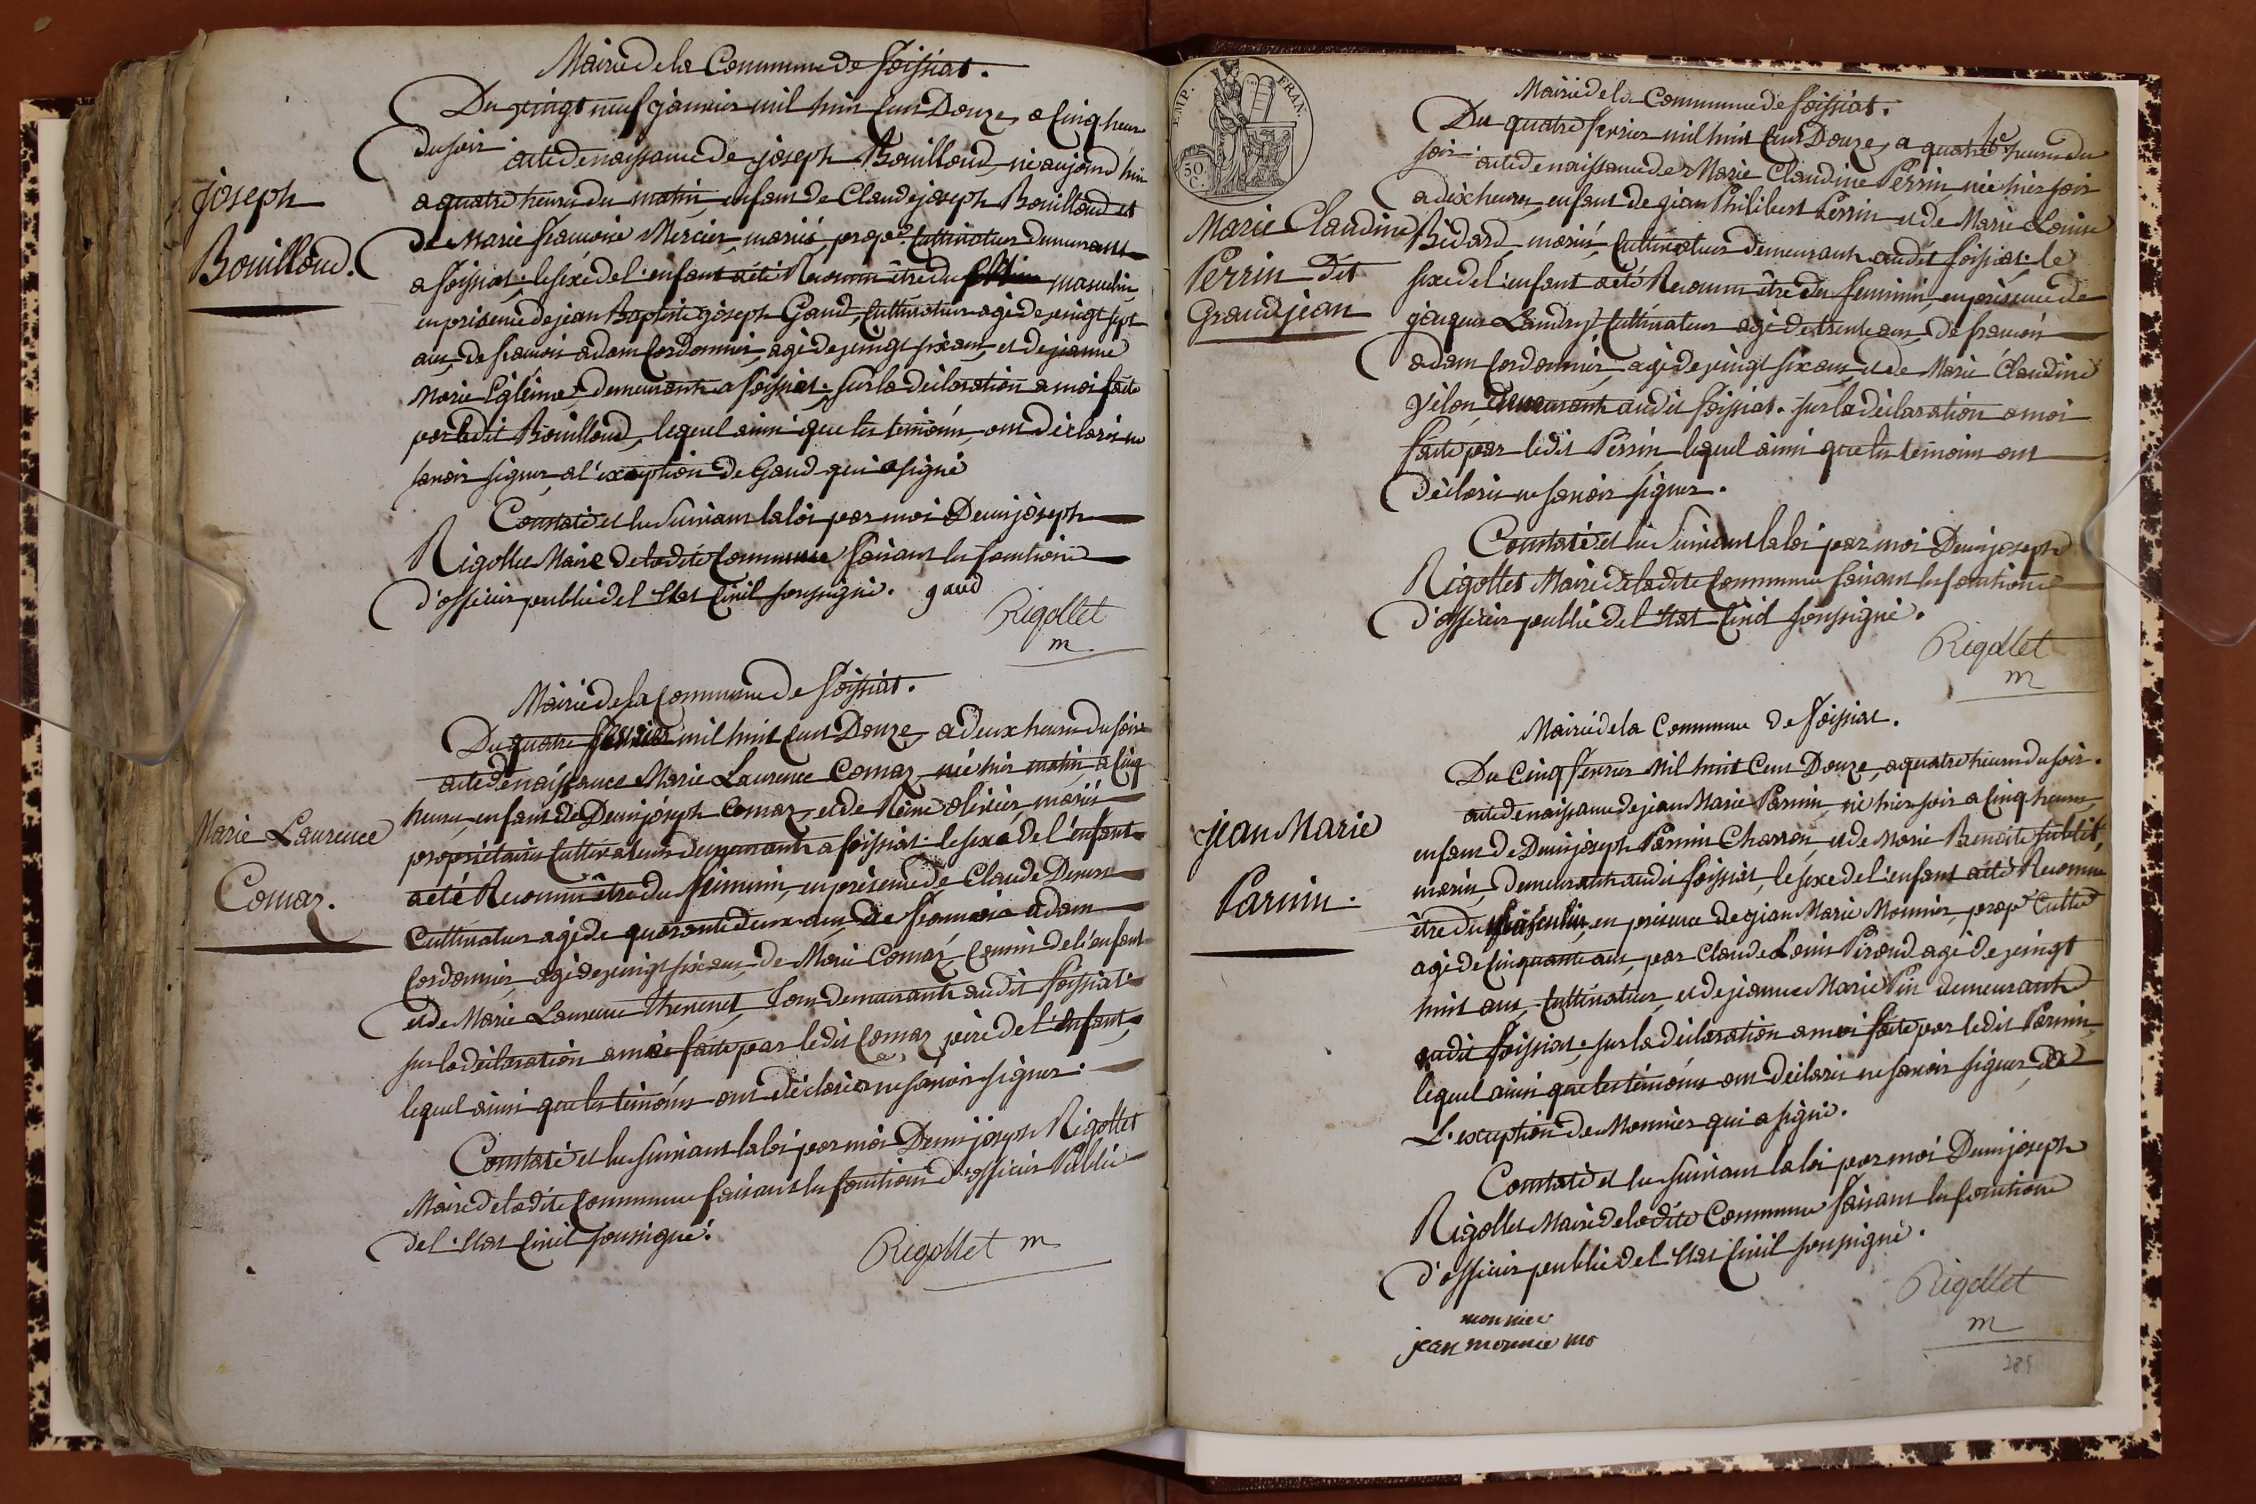 Mairie de la Commune de foissiat.
Du vingt neuf janvier mil huit cent Douze, a Cinq heures
du soir.
acte de naissance de joseph Bouilloud, né aujourd'hui
a quatre heures du matin, enfant de Claude joseph Bouilloud et
de Marie francoise Mercier, mariés, prop.re Cultivateur demeurants
a foissiat. le sexe de l'enfant a été Reconnu être du masculin,
en présence de jean Baptiste joseph Gaud, Cultivateur agé de vingt sept
ans, de francois adam Cordonnier, agé de vingt six ans, et de jeanne
Marie demeurants a foissiat. sur la déclaration a moi faite
par ledit Bouilloud, lequel ainsi que les témoins, ont déclaré ne
savoir signer, a l'exception de Gaud qui a signé
Constaté et lu suivant la loi par moi Denis joseph
Rigollet Maire de ladite Commune faisant les fonctions
d'officier public de l'état Civil soussigné. gaud
Rigollet
m
joseph
Bouilloud.
Mairie de la Commune de foissiat.
Du quatre fevrier mil huit Cent Douze, a deux heures du soir
acte de naissance Marie Laurence Comaz, née hier matin a Cinq
heures, enfant de Denis joseph Comaz, et de Reine olivier, mariés
propriétaires Cultivateurs demeurants a foissiat. le sexe de l'enfant
a été Reconnu être du féminin, en présence de Claude
Cultivateur agé de quarante deux ans, de francois adam
Cordonnier, agé de vingt six ans, de Marie Comaz, Cousin de l'enfant
et de Marie Laurence Thevenet, tous demeurants audit foissiat.
sur la déclaration a moi faite par ledit Comaz, père de l'enfant,
lequel ainsi que les témoins ont déclaré ne savoir signer.
Constaté et lu suivant la loi par moi Denis joseph Rigollet
Maire de ladite Commune faisant les fonctions d'officier Public
de l'état Civil soussigné.
Rigollet m
Marie Laurence
Comaz.
EMP. FRAN.
50 C.
Mairie de la Commune de foissiat.
Du quatre fevrier mil huit Cent Douze, a quatre heures du
soir.
acte de naissance de Marie Claudine Perrin, née hier soir
a dix heures, enfant de jean Philibert Perrin et de Marie Louise
Bidard, mariés, Cultivateurs demeurants audit foissiat. le
sexe de l'enfant a été Reconnu être du feminin, en présence de
jacques Landry, Cultivateur agé de trente ans, de francois
adam Cordonnier, agé de vingt six ans, et de Marie Claudine
demeurants audit foissiat. sur la déclaration a moi
faite par ledit Perrin, lequel ainsi que les témoins ont
déclaré ne savoir signer.
Constaté et lu suivant la loi par moi Denis joseph
Rigollet Maire de ladite Commune faisant les fonctions
d'officier public de l'état Civil soussigné.
Rigollet
m
Marie Claudine
Perrin dit
Grandjean
Mairie de la Commune de foissiat.
Du Cinq fevrier Mil huit Cent Douze, a quatre heures du soir.
acte de naissance de jean Marie Parnin, né hier soir a Cinq heures,
enfant de Denis joseph Parnin Charron, et de Marie Benoite
mariés, demeurants audit foissiat, le sexe de l'enfant a été Reconnu
être du Masculin, en présence de jean Marie Monnier, prop.re Cult.r
agé de Cinquante ans, par Claude Louis Piroud agé de vingt
huit ans, Cultivateur, et de jeanne Marie Pin demeurants
audit foissiat. sur la déclaration a moi faite par ledit Parnin
lequel ainsi que les témoins ont déclaré ne savoir signer, a
L'exception de Monnier qui a signé.
Constaté et lu suivant la loi par moi Denis joseph
Rigollet Maire de ladite Commune faisant les fonctions
d'officier public de l'état Civil soussigné.
Rigollet
m
monnier
jean
jean Marie
Parnin.